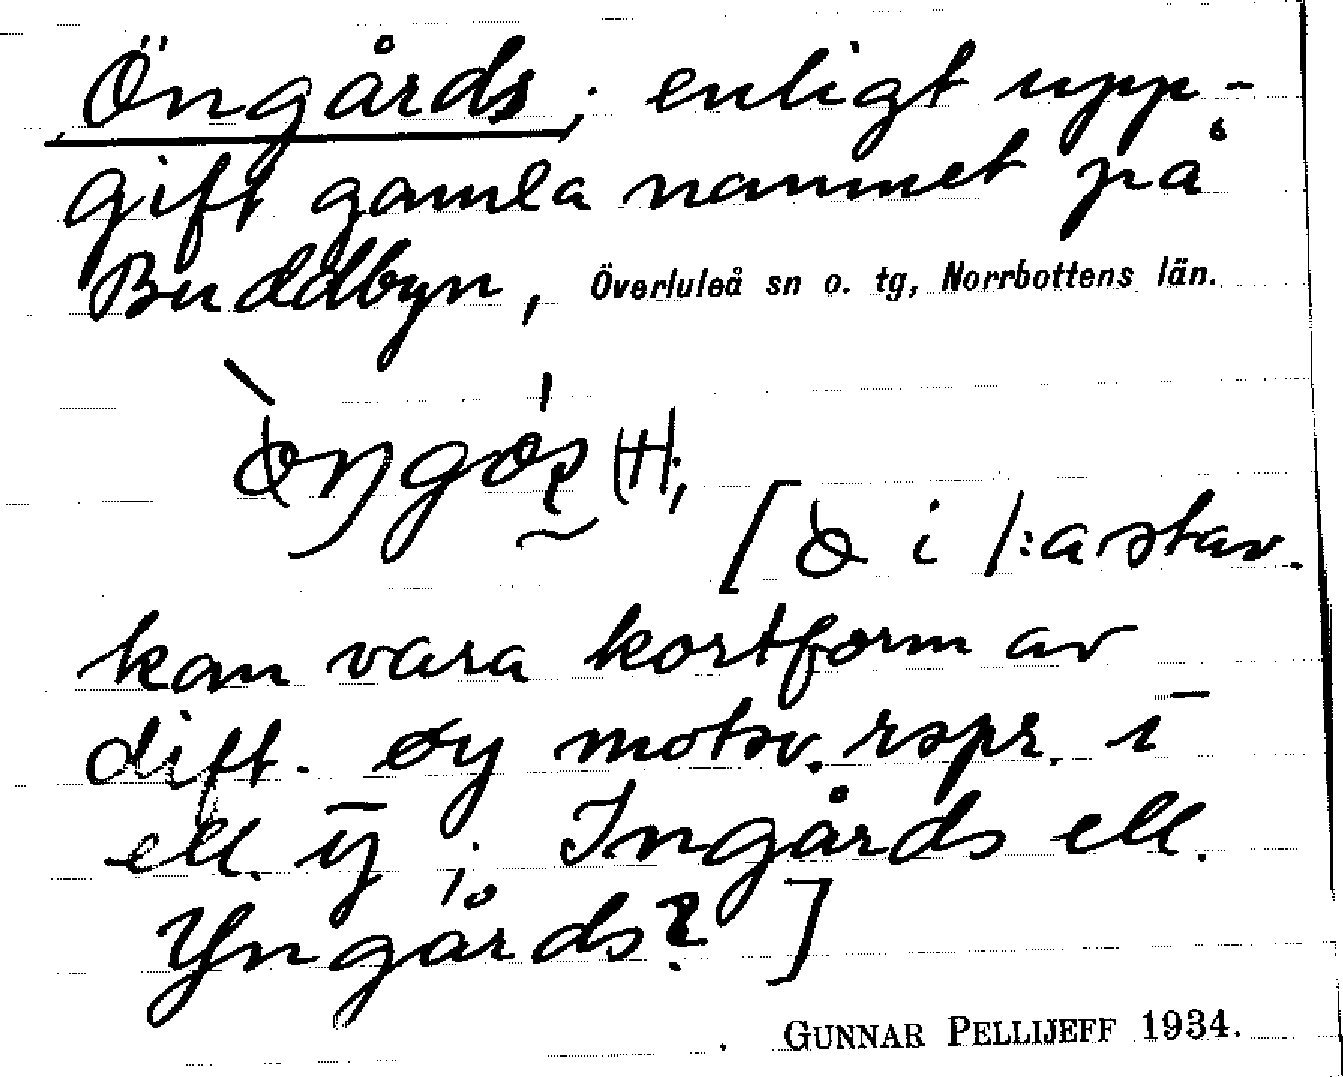 Öngårds; enligt upp-
gift gamla namnet på
Buddbyn, Överluleå sn o. tg, Norrbottens län.
[ö i 1:a stav.
kan vara kortform av
dift. öy motsv. rspr. ī
ell. ȳ; Ingårds ell.
Yngårds? ]
GUNNAR PELLIJEFF 1934.